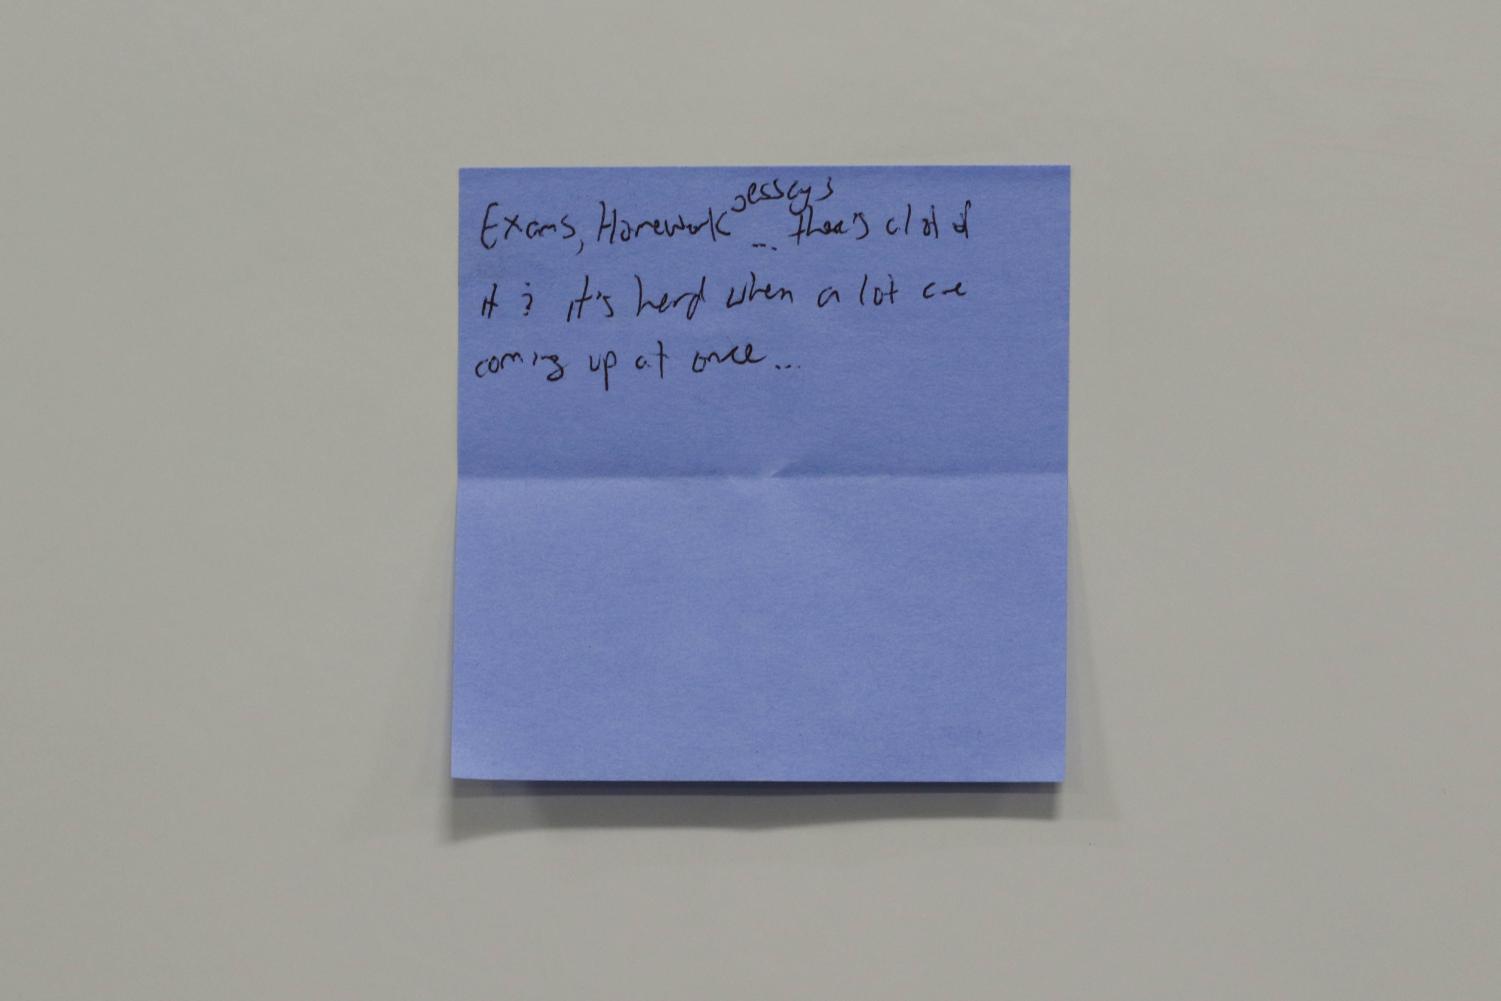 Exams, Homework, essays ... there's a lot of
it ; it's hard when a lot are
coming up at once...